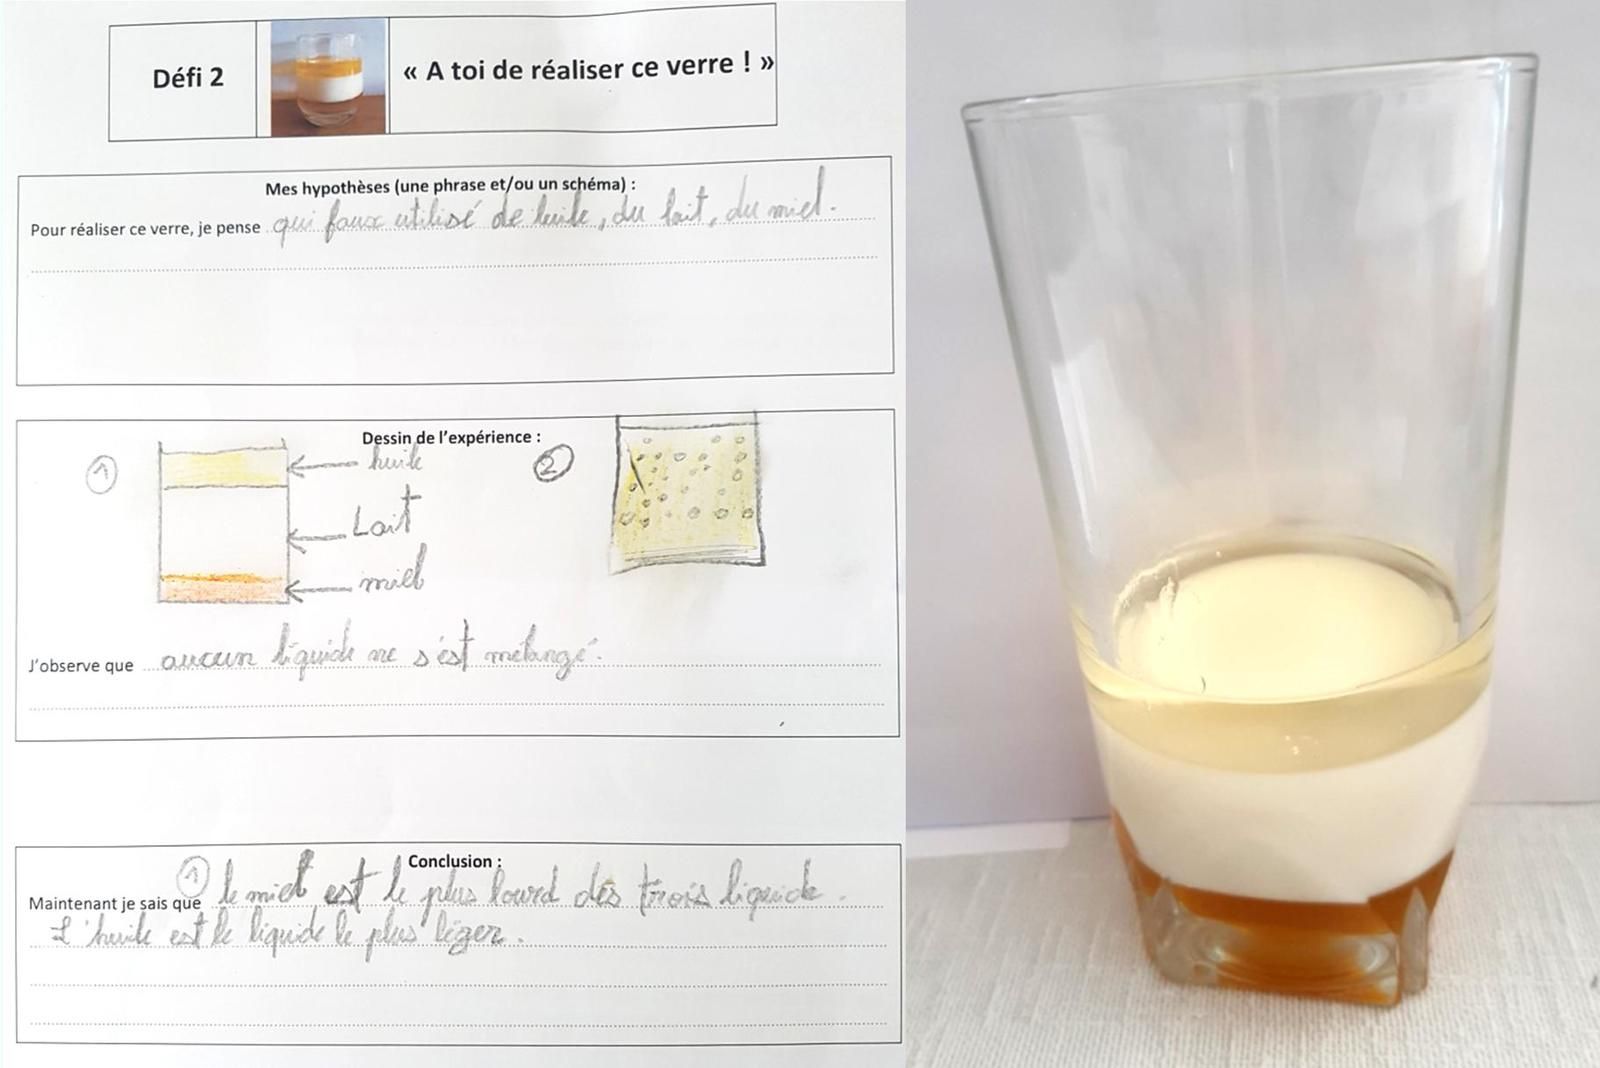 Défi 2
« A toi de réaliser ce verre ! »
Mes hypothèses (une phrase et/ou un schéma) :
Pour réaliser ce verre, je pense qui faux utilisé de huile, du lait, du miel.
Dessin de l'expérience :
1
huile
2
Lait
miel
J'observe que aucun liquide ne s'est mélangé.
Conclusion :
Maintenant je sais que 1 le miel est le plus lourd dés trois liquide.
L'huile est le liquide le plus léger.